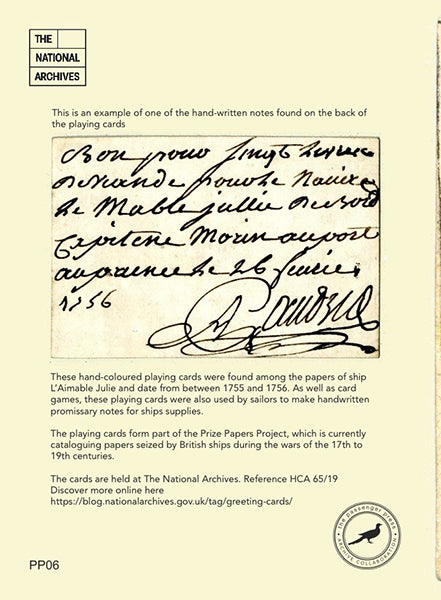 THE
NATIONAL
ARCHIVES
This is an example of one of the hand-written notes found on the back of
the playing cards
Bon pour vingt
De viande pour Le Navire
Le Mable jullie De Bord
Capitene Morin au port
au prince Le 26 fevrier
1756
These hand-coloured playing cards were found among the papers of ship
L’Aimable Julie and date from between 1755 and 1756. As well as card
games, these playing cards were also used by sailors to make handwritten
promissary notes for ships supplies.
The playing cards form part of the Prize Papers Project, which is currently
cataloguing papers seized by British ships during the wars of the 17th to
19th centuries.
The cards are held at The National Archives. Reference HCA 65/19
Discover more online here
https://blog.nationalarchives.gov.uk/tag/greeting-cards/
the passenger press
ARCHIVE COLLABORATION
PP06